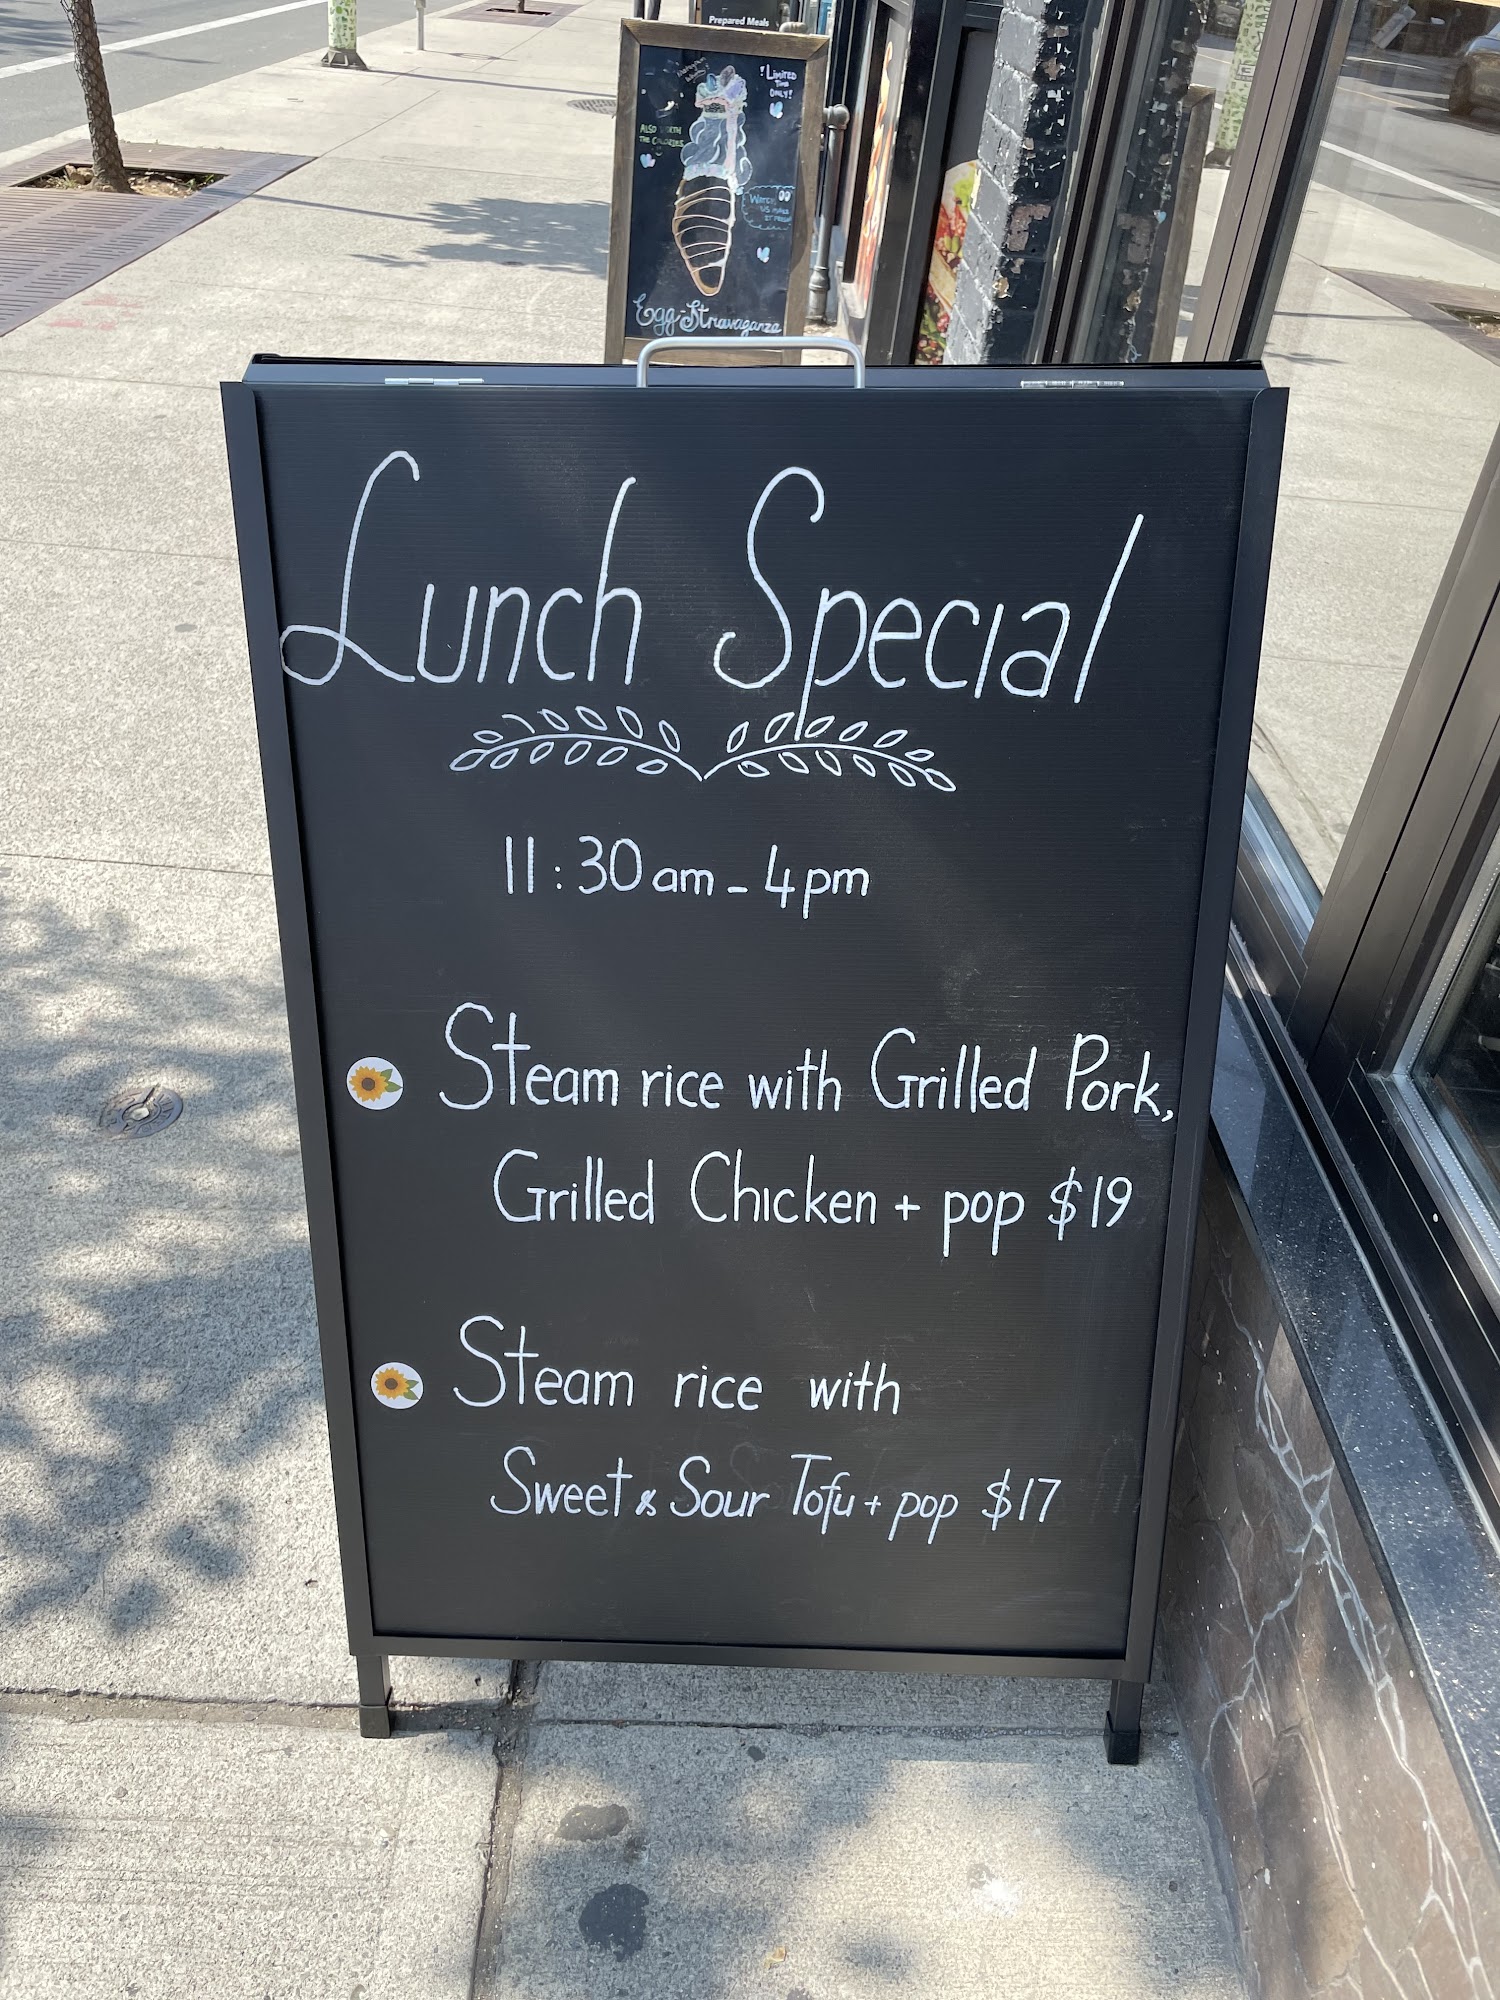 Prepared Meals
! LIMITED
TIME
ONLY!
ALSO WORTH
THE CALORIES
WATCH
US MAKE
IT FRESH
Egg-Stravaganza
Lunch Special
11:30am - 4pm
Steam rice with Grilled Pork,
Grilled Chicken + pop $19
Steam rice with
Sweet & Sour Tofu + pop $17